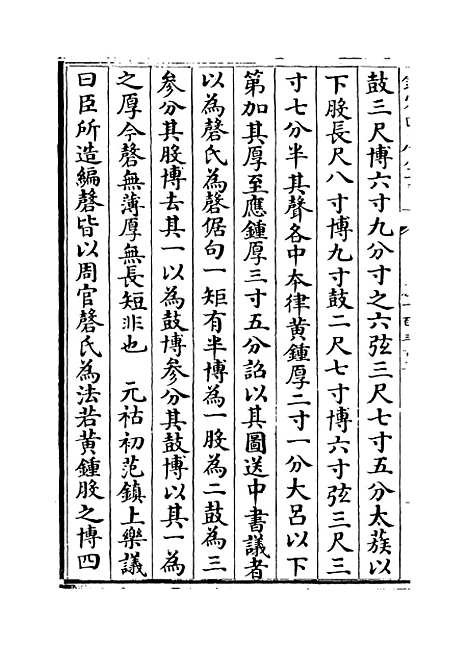 鼓三尺博六寸九分寸之六弦三尺七寸五分太蔟以
下股長尺八寸博九寸鼓二尺七寸博六寸弦三尺三
寸七分半其聲各中本律黄鍾厚二寸一分大呂以下
第加其厚至應鍾厚三寸五分詔以其圖送中書議者
以為磬氏為磬倨句一矩有半博為一股為二鼓為三
参分其股博去其一以為鼓博参分其鼓博以其一為
之厚今磬無薄厚無長短非也　元祐初范鎮上樂議
曰臣所造編磬皆以周官磬氏為法若黄鍾股之博四